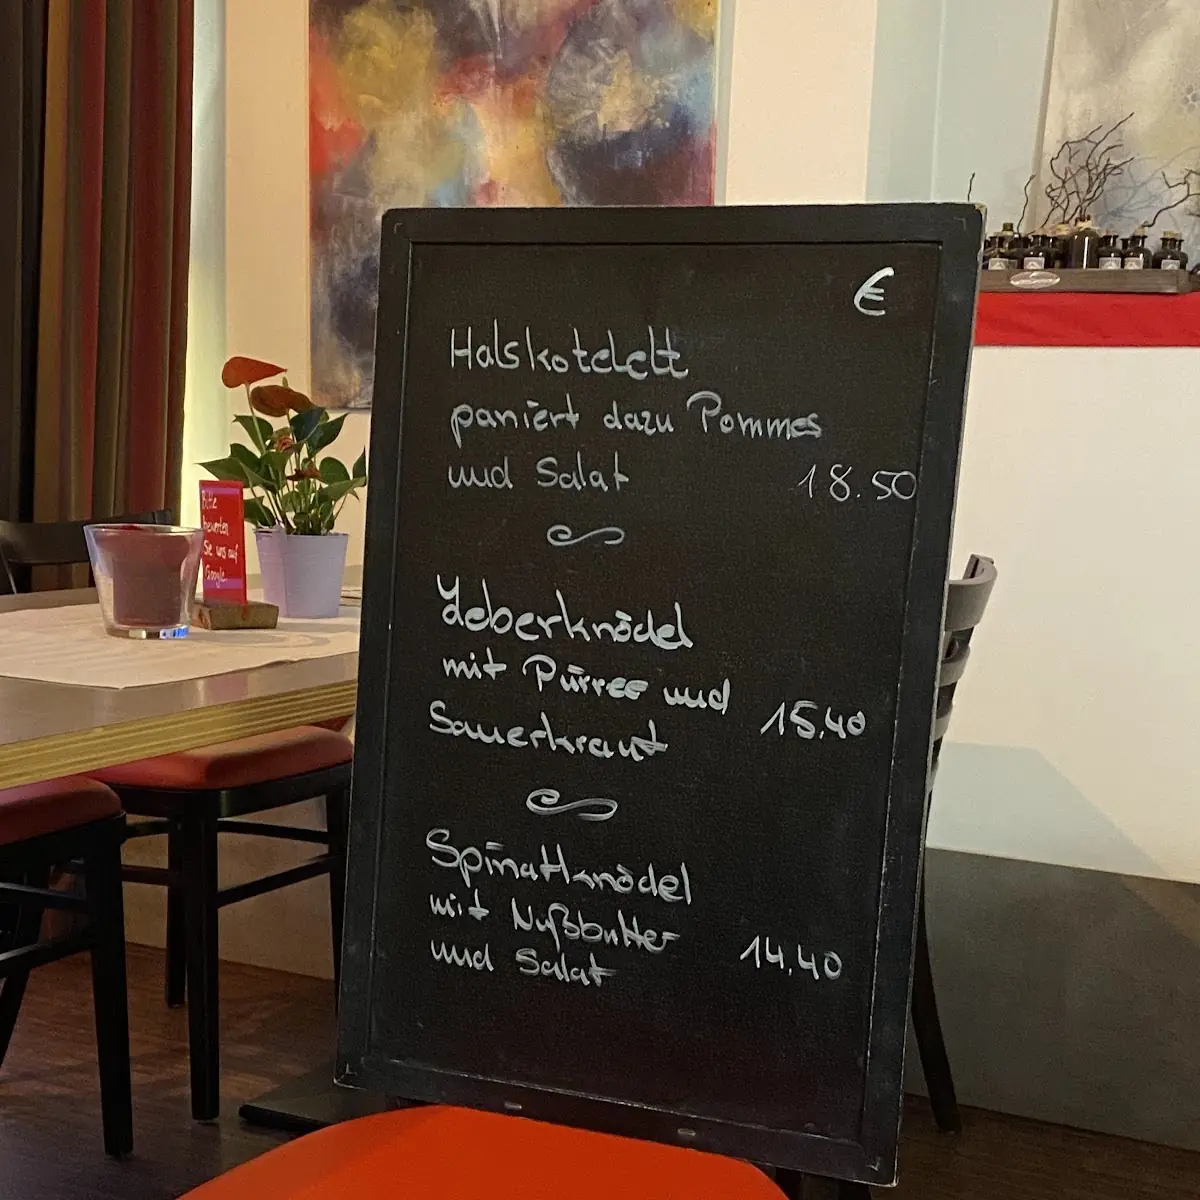 €
Halskotelett
paniert dazu Pommes
und Salat 18.50
Leberknödel
mit Pürree und
Sauerkraut 15,40
Spinatknödel
mit Nußbutter
und Salat 14,40
Bitte
bewerten
Sie uns auf
Google